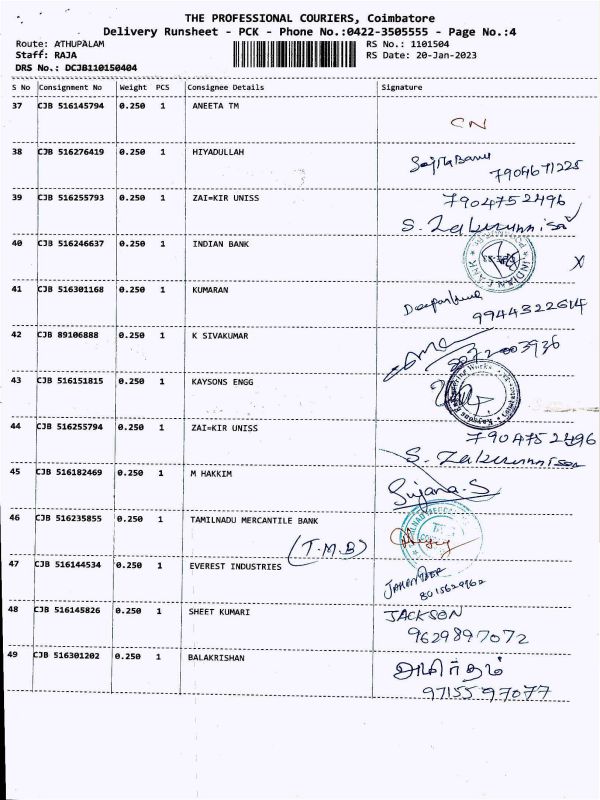 THE PROFESSIONAL COURIERS, Coimbatore
Delivery Runsheet - PCK - Phone No.:0422-3505555 - Page No.:4
Route: ATHUPALAM RS No.: 1101504
Staff: RAJA RS Date: 20-Jan-2023
DRS No.: DCJB110150404
S No Consignment No Weight PCS Consignee Details Signature
37 CJB 516145794 0.250 1 ANEETA TM
CN
38 CJB 516276419 0.250 1 HIYADULLAH
7904671225
39 CJB 516255793 0.250 1 ZAI=KIR UNISS 7904752496
S. Zakirunnisa
40 CJB 516246637 0.250 1 INDIAN BANK
INDIAN BANK
X
41 CJB 516301168 0.250 1 KUMARAN
9944322614
42 CJB 89106888 0.250 1 K SIVAKUMAR
43 CJB 516151815 0.250 1 KAYSONS ENGG
44 CJB 516255794 0.250 1 ZAI=KIR UNISS 7904752496
S. Zakirunnisa
45 CJB 516182469 0.250 1 M HAKKIM
Sujana.S
46 CJB 516235855 0.250 1 TAMILNADU MERCANTILE BANK
(T.M.B)
47 CJB 516144534 0.250 1 EVEREST INDUSTRIES
8015629962
48 CJB 516145826 0.250 1 SHEET KUMARI JACKSON
9629897072
49 CJB 516301202 0.250 1 BALAKRISHAN அமிர்தம்
9715597077